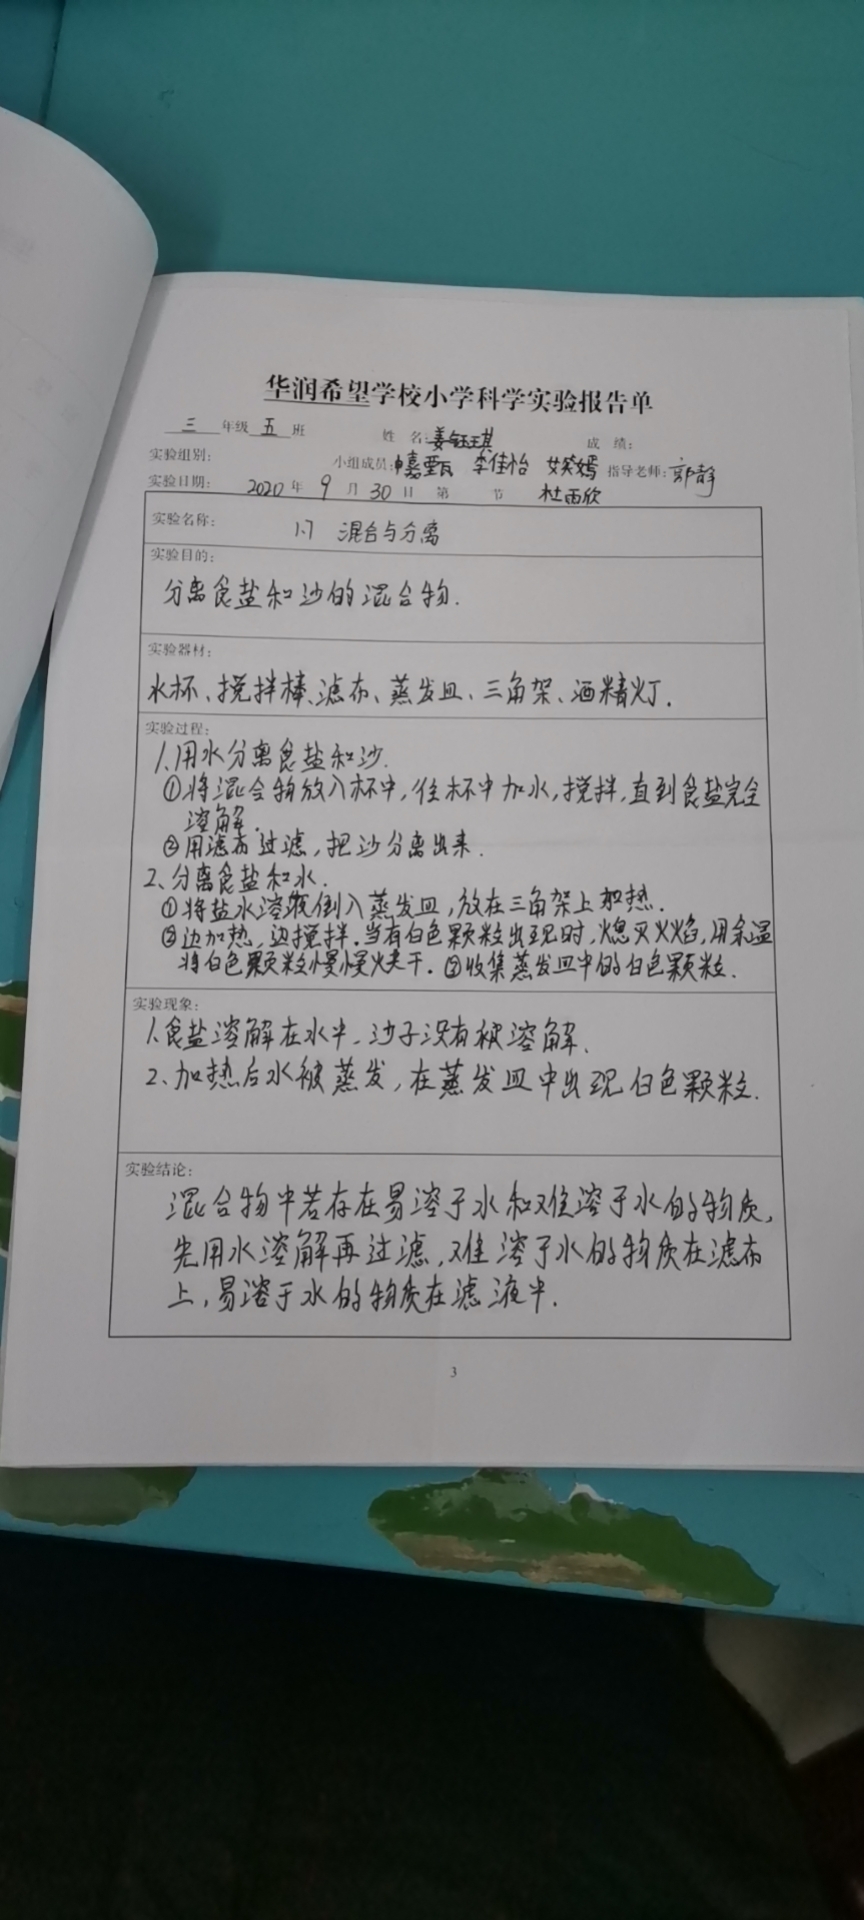 华润希望学校小学科学实验报告单
三 年级 五 班 姓 名: 姜钰琪 成 绩:
实验组别: 小组成员: 李佳怡 指导老师: 郭静
实验日期: 2020 年 9 月 30 日 第 节 杜西欣
实验名称: 1.7 混合与分离
实验目的:
分离食盐和沙的混合物.
实验器材:
水杯、搅拌棒、滤布、蒸发皿、三角架、酒精灯.
实验过程:
1.用水分离食盐和沙.
①将混合物放入杯中,往杯中加水,搅拌,直到食盐完全
溶解.
②用滤布过滤,把沙分离出来.
2、分离食盐和水.
①将盐水溶液倒入蒸发皿,放在三角架上加热.
②边加热,边搅拌.当有白色颗粒出现时,熄灭火焰,用余温
将白色颗粒慢慢烘干.③收集蒸发皿中的白色颗粒.
实验现象:
1.食盐溶解在水中,沙子没有被溶解.
2、加热后水被蒸发,在蒸发皿中出现白色颗粒.
实验结论:
混合物中若存在易溶于水和难溶于水的物质,
先用水溶解再过滤,难溶于水的物质在滤布
上,易溶于水的物质在滤液中.
3